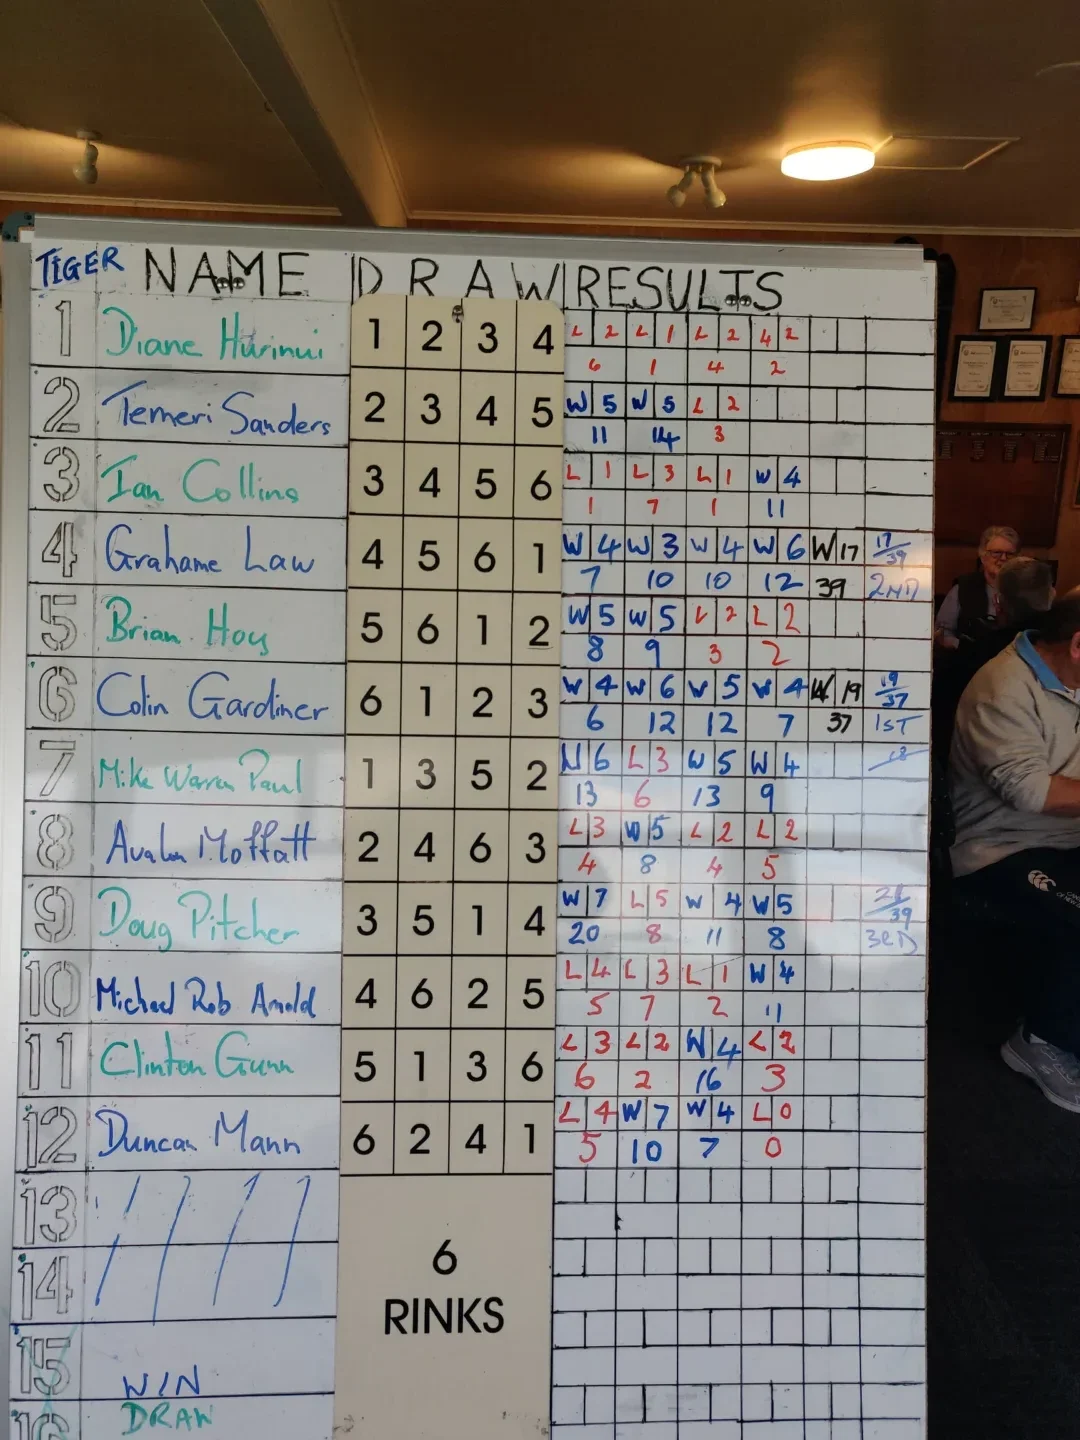 TIGER NAME DRAW RESULTS
1 Diane Hurinui 1 2 3 4 L 2 L 1 L 2 L 2
6 1 4 2
2 Temeri Sanders 2 3 4 5 W 5 W 5 L 2
11 14 3
3 Ian Collins 3 4 5 6 L 1 L 3 L 1 W 4
1 7 1 11
4 Grahame Law 4 5 6 1 W 4 W 3 W 4 W 6 W 17 17/39
7 10 10 12 39 2ND
5 Brian Hoy 5 6 1 2 W 5 W 5 L 2 L 2
8 9 3 2
6 Colin Gardiner 6 1 2 3 W 4 W 6 W 5 W 4 W 19 19/37
6 12 12 7 37 1ST
7 Mike Warren Paul 1 3 5 2 W 6 L 3 W 5 W 4 18
13 6 13 9
8 Avalon Moffatt 2 4 6 3 L 3 W 5 L 2 L 2
4 8 4 5
9 Doug Pitcher 3 5 1 4 W 7 L 5 W 4 W 5 21/39
20 8 11 8 3RD
10 Michael Rob Arnold 4 6 2 5 L 4 L 3 L 1 W 4
5 7 2 11
11 Clinton Gunn 5 1 3 6 L 3 L 2 W 4 L 2
6 2 16 3
12 Duncan Mann 6 2 4 1 L 4 W 7 W 4 L 0
5 10 7 0
13
14
6
RINKS
15 WIN
16 DRAW